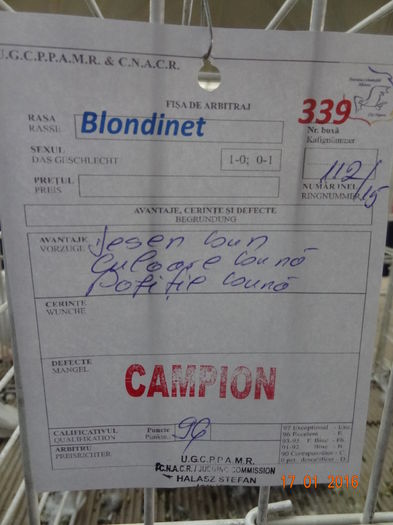 U.G.C.P.P.A.M.R. & C.N.A.C.R.
FIȘA DE ARBITRAJ
339
RASA
RASSE
Blondinet
Nr. boxă
Kafignummer
SEXUL
DAS GESCHLECHT
1-0; 0-1
112/15
PREȚUL
PREIS
NUMĂR INEL
RINGNUMMER
AVANTAJE, CERINȚE ȘI DEFECTE
BEGRUNDUNG
AVANTAJE
VORZUGE
Desen bun
Culoare bună
Poziție bună
CERINȚE
WUNCHE
DEFECTE
MANGEL
CAMPION
CALIFICATIVUL
QUALIFIKATION
Puncte
Punkte.
96
97 Excepțional - Exc
96 Excelent - E.
93-95 F. Bine - Fb.
91-92 Bine - B.
90 Corespunzător - C.
0 pct. descalificat - D.
ARBITRU
PREISRICHTER
U.G.C.P.P.A.M.R.
C.N.A.C.R. / JUDGING COMMISSION
HALASZ STEFAN
17 01 2016